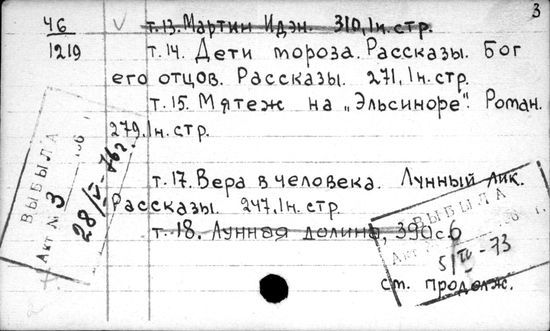 3
46
1219
V т.13. Мартин Идэн. 310, 1н. стр.
т.14. Дети мороза. Рассказы. Бог
его отцов. Рассказы. 271, 1н. стр.
т.15. Мятеж на „Эльсиноре". Роман.
279, 1н. стр.
т.17. Вера в человека. Лунный лик.
Рассказы. 247, 1н. стр.
т.18. Лунная долина, 390 с.
ВЫБЫЛА
Акт № 3
28/IV-76г.
ВЫБЫЛА
196 г.
Акт
5/IV-73
см. продолж.